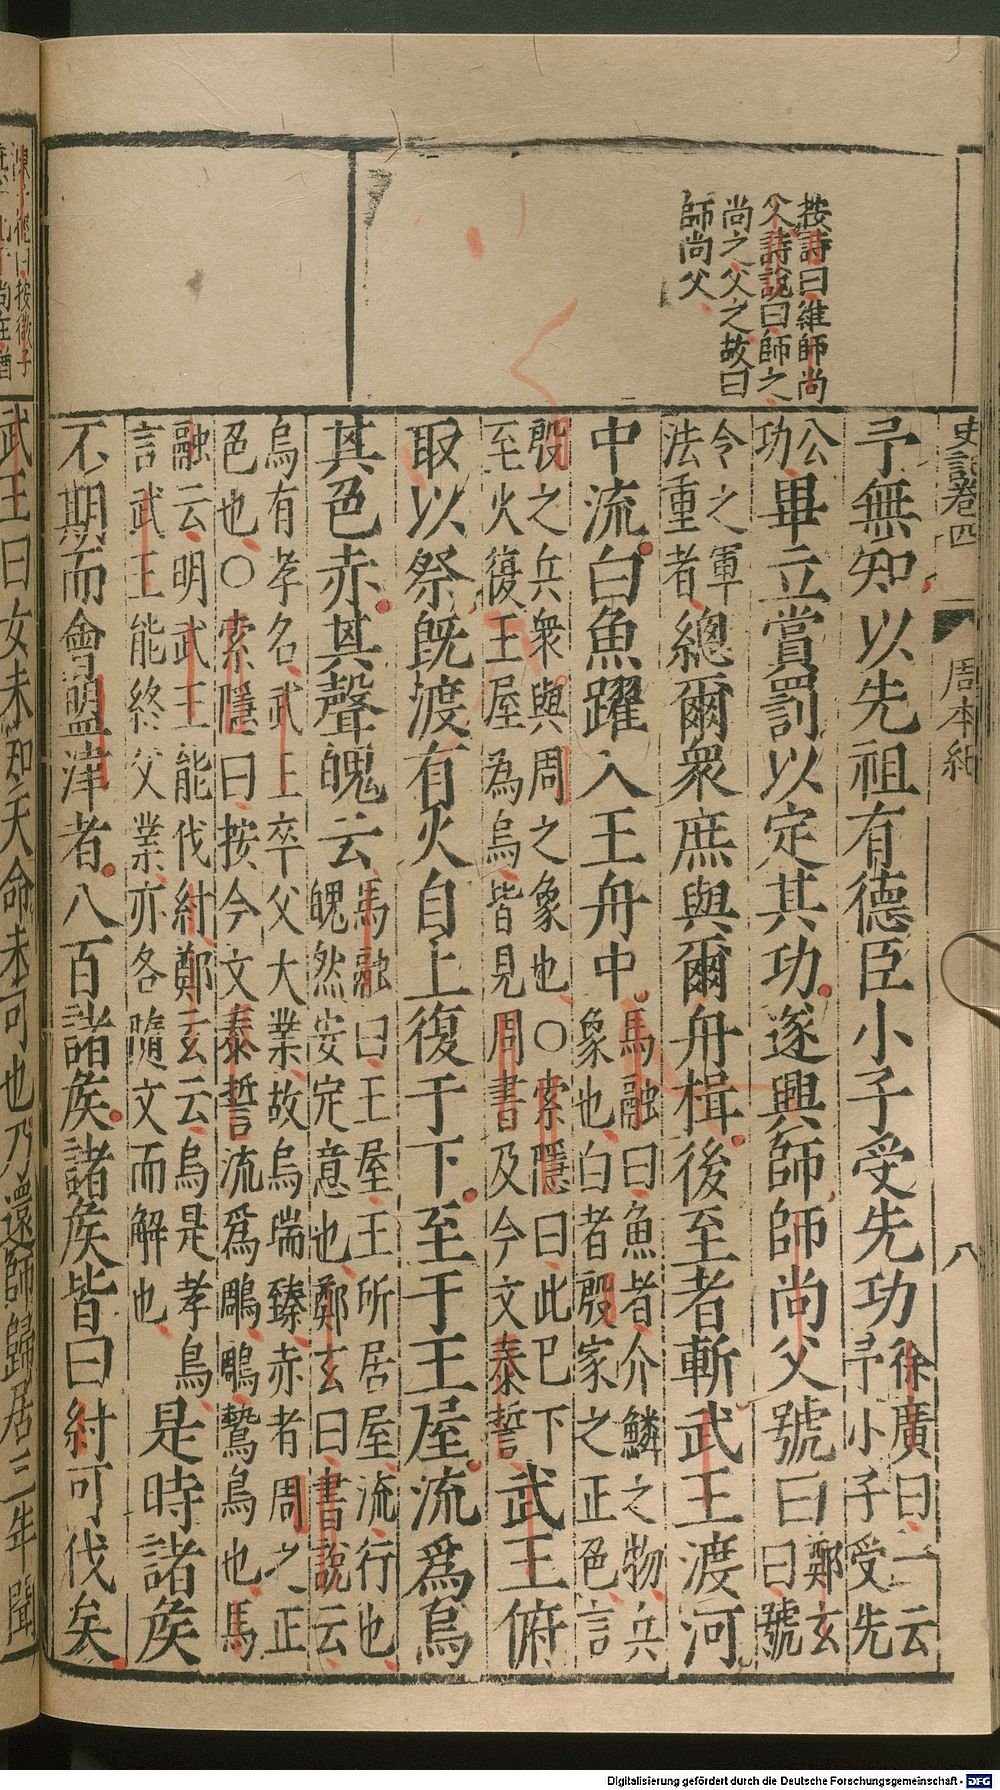 按詩曰維師尚
父詩說曰師之
尚之父之故曰
師尚父
史記卷四
周本紀
八
予無知以先祖有德臣小子受先功徐廣曰一云予小子受先
公功畢立賞罰以定其功遂興師師尚父號曰鄭玄曰號
令之軍法重者總爾眾庶與爾舟楫後至者斬武王渡河
中流白魚躍入王舟中馬融曰魚者介鱗之物兵象也白者殷家之正色言
殷之兵眾與周之象也○索隱曰此已下至火復王屋為烏皆見周書及今文泰誓武王俯
取以祭既渡有火自上復于下至于王屋流為烏
其色赤其聲魄云馬融曰王屋王所居屋流行也魄然安定意也鄭玄曰書說云
烏有孝名武王卒父大業故烏瑞臻赤者周之正色也○索隱曰按今文泰誓流爲鵰鵰鷙鳥也馬
融云明武王能伐紂鄭玄云烏是孝鳥言武王能終父業亦各隨文而解也是時諸矦
不期而會盟津者八百諸矦諸矦皆曰紂可伐矣
武王曰女未知天命未可也乃還師歸居三年聞
Digitalisierung gefördert durch die Deutsche Forschungsgemeinschaft - DFG